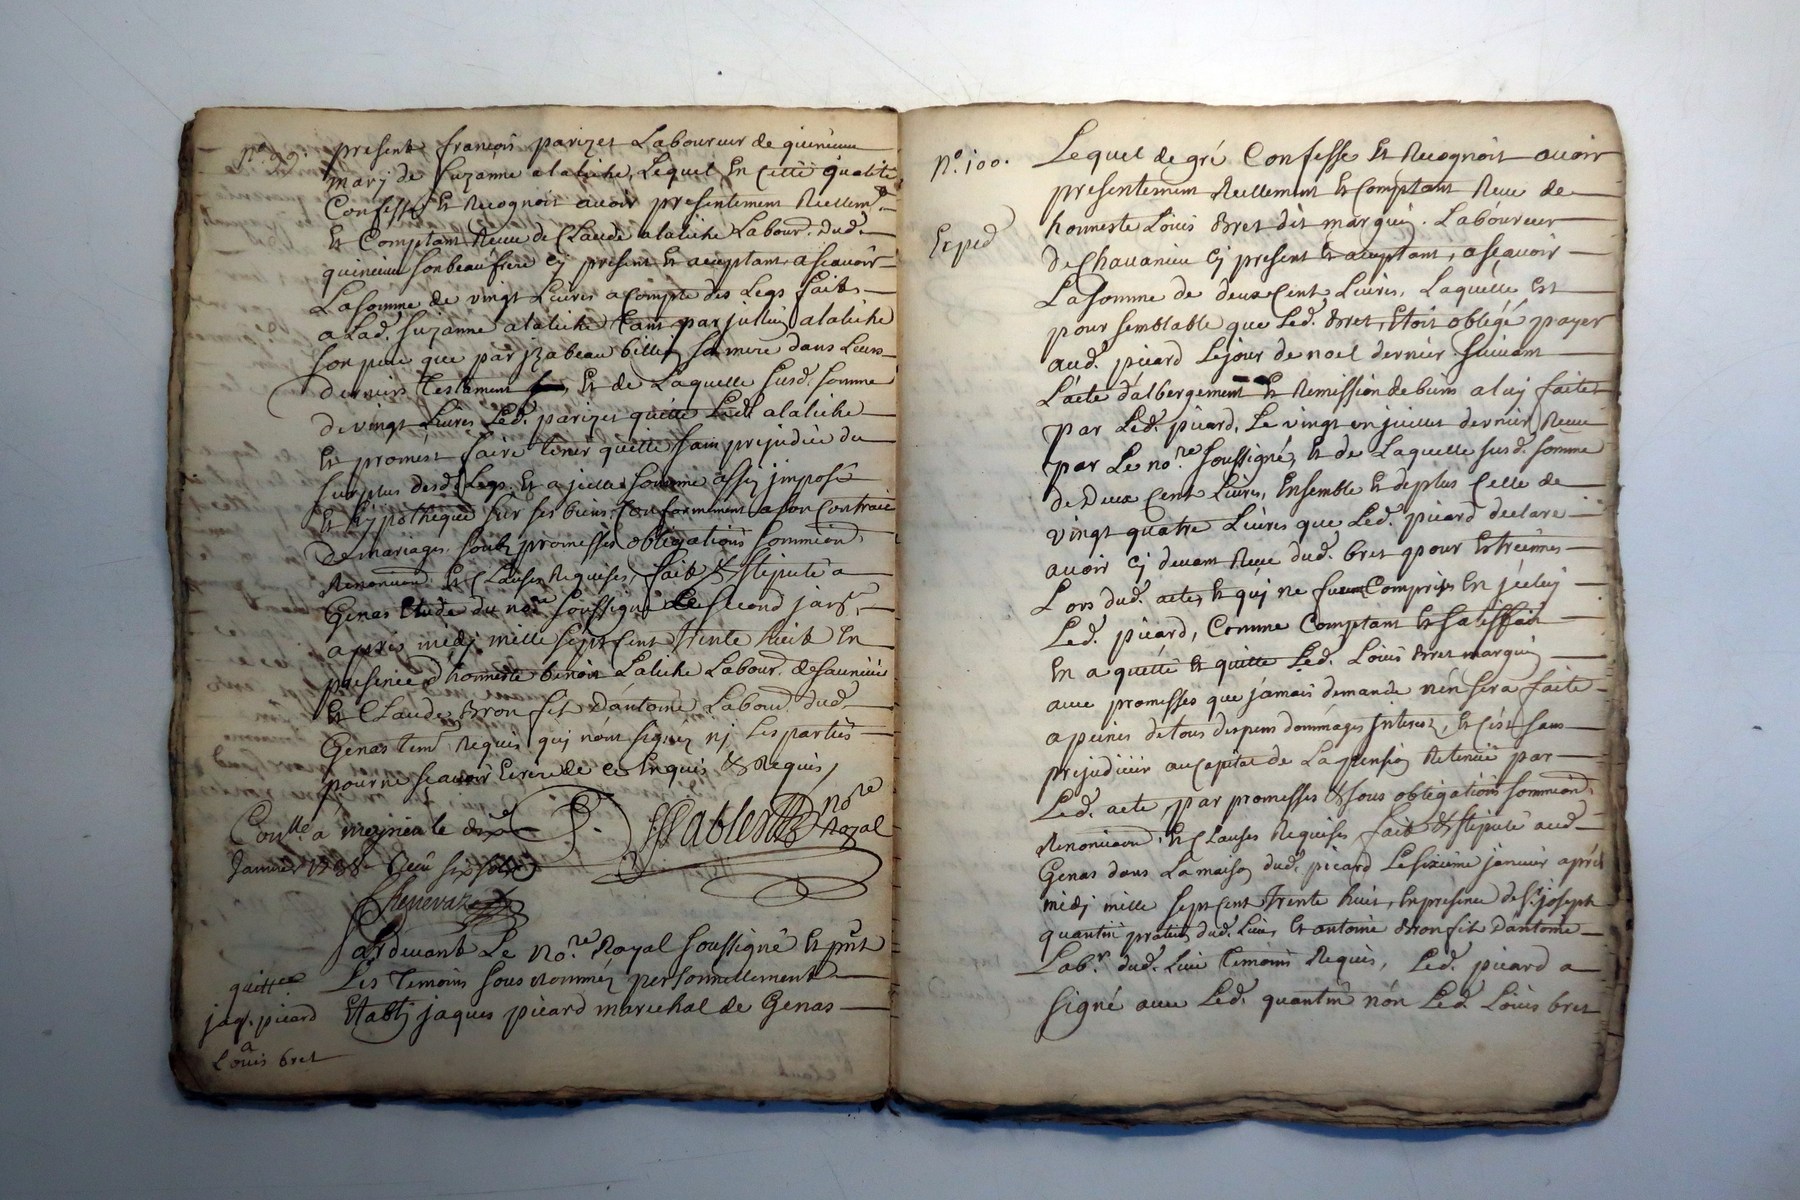 n.o 99.
present françois parizet Laboureur de quincieu
marj de suzanne alatiche, Lequel En cette qualité
Confesse Et Recognoit avoir presentement Reellem.t
Et Comptant Receu de Claude alatiche Labour. dud.
quincieu son beau frere cy present Et acceptant, ascavoir
La somme de vingt Livres a Compte des Legs faits
a Lad. suzanne alatiche tant par jullin alatiche
son pere que par jzabeau billiy sa mere dans Leurs
derniers testament Et de Laquelle susd. somme
de vingt Livres Led. parizet quitte Led. alatiche
Et promest faire tenir quitte sans prejudice du
surplus desd. Legs. Et a jcelle somme assis jmposé
Et hÿpothequé sur ses biens conformement a son Contract
de mariages. soubs promesses obligations soumission
Renonciaon Et Clauses Requises, fait & stipulé a
Genas Etude du no.re soussigné Le second janv.r
apres midj mille sept cent trente huit En
presence d'honneste benoit Latiche Labour. de
Et Claude Bron fils d'antoine Labour. dud.
Genas tem. Requis quj n'ont signez nj Les parties
pour ne sçavoir Ecrire de ce Enquis & Requis
no.re Royal
Con.llé a meizieu le dix
Janvier 1738 Receu six sols
Pardevant Le No.re Royal soussigné Et p.nt
Les temoins sous nommés personnellement
Etably jaques picard marechal de Genas
quittce
jaq. picard
a
Louis bret
n.o 100.
Exped
Lequel de gré Confesse Et Recognoit avoir
presentement Reellement Et Comptant Receu de
honneste Louis Bret dit marquis. Laboureur
de Chavanieu Cj present Et acceptant, asçavoir
La somme de deux Cent Livres, Laquelle Est
pour semblable que Led. Bret, Etoit obligé payer
aud. picard Le jour de noel dernier suivant
L'acte d'albergement Et Remission de biens a luy faites
par Led. picard, Le vingt un juillet dernier Receu
par Le no.re soussigné, Et de Laquelle susd. somme
de Deux Cent Livres, Ensemble Et deplus Celle de
vingt quatre Livres que Led. picard declare
avoir cj devant Receu dud. bret pour Estreinnes
Lors dud. acte, Et quj ne furent Comprises En jceluj
Led. picard, Comme Comptant Et satisffait
En a quitté Et quitte Led. Louis Bret marquis
avec promesses que jamais demande n'en sera faite
a peines de tous despens dommages jnterest, Et C'est sans
prejudicier au Capital de La pension Retenüe par
Led. acte, par promesses & sous obligations soumission
Renonciaon. Et Clauses Requises fait & stipulé aud.
Genas dans La maison dud. picard Le sixieme janvier aprés
midj mille sept Cent trente huit, En presence de s.r joseph
quantin praticien dud. Lieu, Et antoine Bron fils d'antoine
Lab.r dud. Lieu temoins Requis, Led. picard a
signé avec Led. quantin nón Led. Louis bret